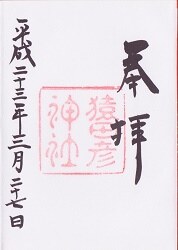 奉拝
猿田彦
神社
平成二十三年三月二十七日